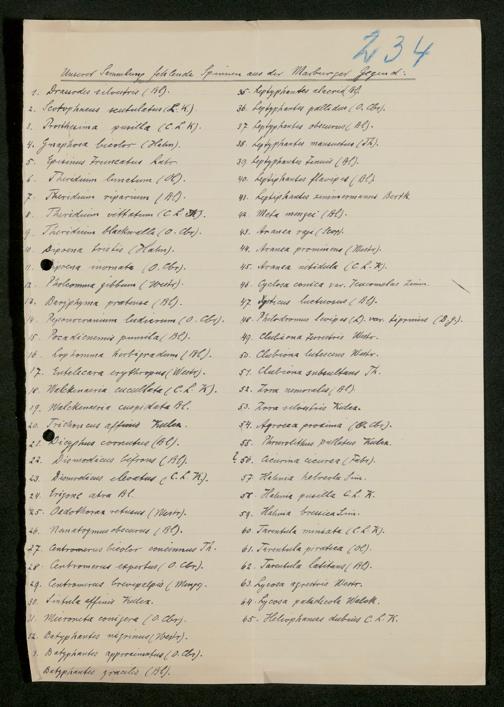 234
Unserer Sammlung fehlende Spinnen aus der Marburger Gegend:
1. Drassodes silvestris (Bl.).
2. Scotophaeus scutulatus (L. K.)
3. Prosthesima pusilla (C. L. K.).
4. Gnaphosa bicolor (Hahn).
5. Episinus truncatus Latr.
6. Theridium lunatum (Ol.)
7. Theridium riparium (Bl.)
8. Theridium vittatum (C. L. K.)
9. Theridium blackwalli (O. Cbr.)
10. Dipoena tristis (Hahn).
11. Dipoena inornata (O. Cbr.).
12. Pholcomma gibbum (Westr.)
13. Doryphyma pratense (Bl.)
14. Peponocranium ludicrum (O. Cbr.)
15. Pocadicnemis pumila (Bl.)
16. Lophomma herbigradum (Bl.)
17. Entelecara erythropus (Westr.)
18. Walckenaeria cucullata (C. L. K.)
19. Walckenaeria cuspidata Bl.
20. Trichoncus affinis Kulcz.
21. Dicyphus cornutus (Bl.)
22. Dismodicus bifrons (Bl.)
23. Dismodicus elevatus (C. L. K.)
24. Erigone atra Bl.
25. Oedothorax retusus (Westr.)
26. Nanatogmus obscurus (Bl.)
27. Centromerus bicolor concinnus Th.
28. Centromerus expertus (O. Cbr.)
29. Centromerus brevipalpis (Menge).
30. Sintula affinis Kulcz.
31. Micryphantes (O. Cbr.)
32. Bathyphantes nigrinus (Westr.)
3. Bathyphantes approximatus (O. Cbr.)
Bathyphantes gracilis (Bl.)
35. Leptyphantes alacris Bl.
36. Leptyphantes pallidus (O. Cbr.)
37. Leptyphantes obscurus (Bl.)
38. Leptyphantes mansuetus (Th.)
39. Leptyphantes tenuis (Bl.)
40. Leptyphantes flavipes (Bl.)
41. Leptyphantes zimmermanni Bertk.
42. Meta mengei (Bl.)
43. Aranea raji (Scop.)
44. Aranea prominens (Westr.)
45. Aranea nitidula (C. L. K.)
46. Cyclosa conica var. Sim.
47. (Bl.)
48. Philodromus levipes (L.) var.
49. Clubiona terrestris Westr.
50. Clubiona lutescens Westr.
51. Clubiona subsultans Th.
52. Zora nemoralis (Bl.)
53. Zora silvestris Kulcz.
54. Agroeca proxima (O. Cbr.)
55. Phrurolithus pullatus Kulcz.
? 56. Cicurina cicurea (Fabr.).
57. Hahnia helveola Sim.
58. Hahnia pusilla C. L. K.
59. Hahnia Sim.
60. Tarentula miniata (C. L. K.)
61. Tarentula (Ol.)
62. Tarentula (Bl.)
63. Lycosa agrestis Westr.
64. Lycosa paludicola Walck.
65. Heliophanus dubius C. L. K.